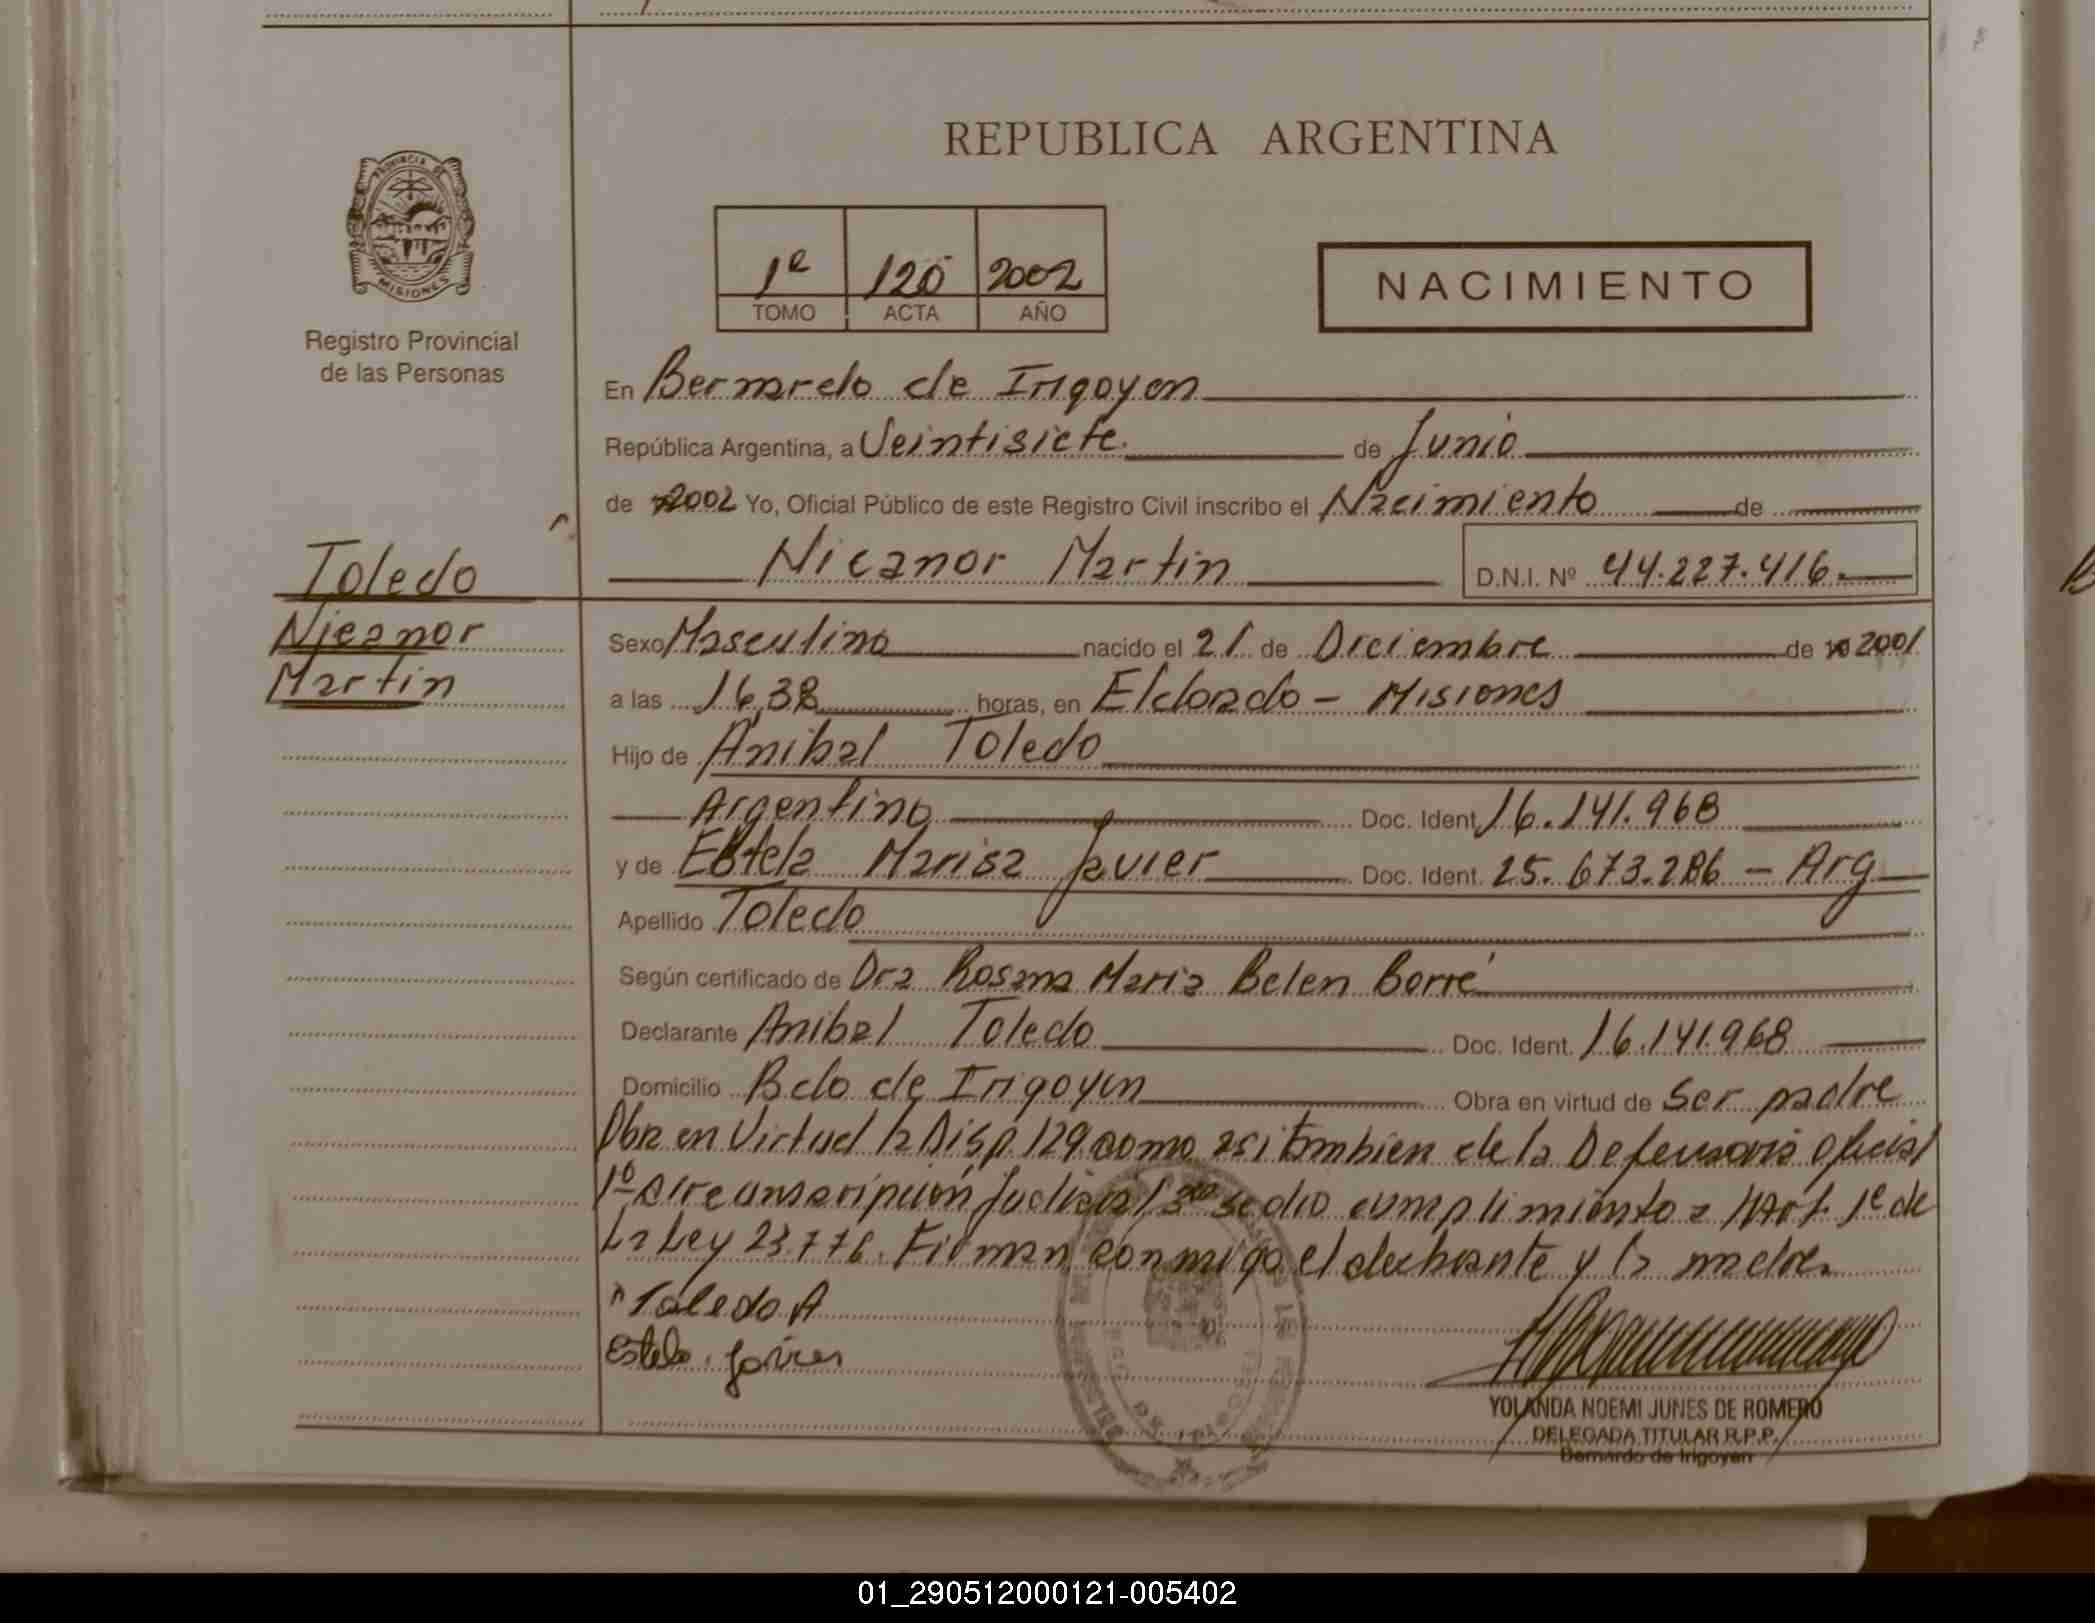 REPUBLICA ARGENTINA
PROVINCIA DE MISIONES
Registro Provincial
de las Personas
1º 120 2002
TOMO ACTA AÑO
NACIMIENTO
En Bernardo de Irigoyen
República Argentina, a Veintisiete de Junio
de 2002 Yo, Oficial Público de este Registro Civil inscribo el Nacimiento de
Nicanor Martin D.N.I. Nº 44.227.416.
Toledo
Nicanor
Martin
Sexo Masculino nacido el 21 de Diciembre de 2001
a las 16,38 horas, en Eldorado - Misiones
Hijo de Anibal Toledo
Argentino Doc. Ident. 16.141.968
y de Estela Marisa Javier Doc. Ident. 25.673.286 - Arg
Apellido Toledo
Según certificado de Dra Rosana Maria Belen Borré
Declarante Anibal Toledo Doc. Ident. 16.141.968
Domicilio Bdo de Irigoyen Obra en virtud de ser padre
Obra en Virtud la Disp. 129 como asi tambien de la Defensoria oficial
1º Circunscripción Judicial se dio cumplimiento a l Art. 1º de
La Ley 23.776. Firman conmigo el declarante y la madre.
Toledo A
Estela Javier
YOLANDA NOEMI JUNES DE ROMERO
DELEGADA TITULAR R.P.P.
Bernardo de Irigoyen
01_290512000121-005402